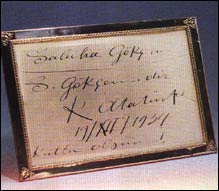 Sabiha Gökçen
S. Gökçen. dir
K. Atatürk
19/XII/1934
Kutlu olsun!